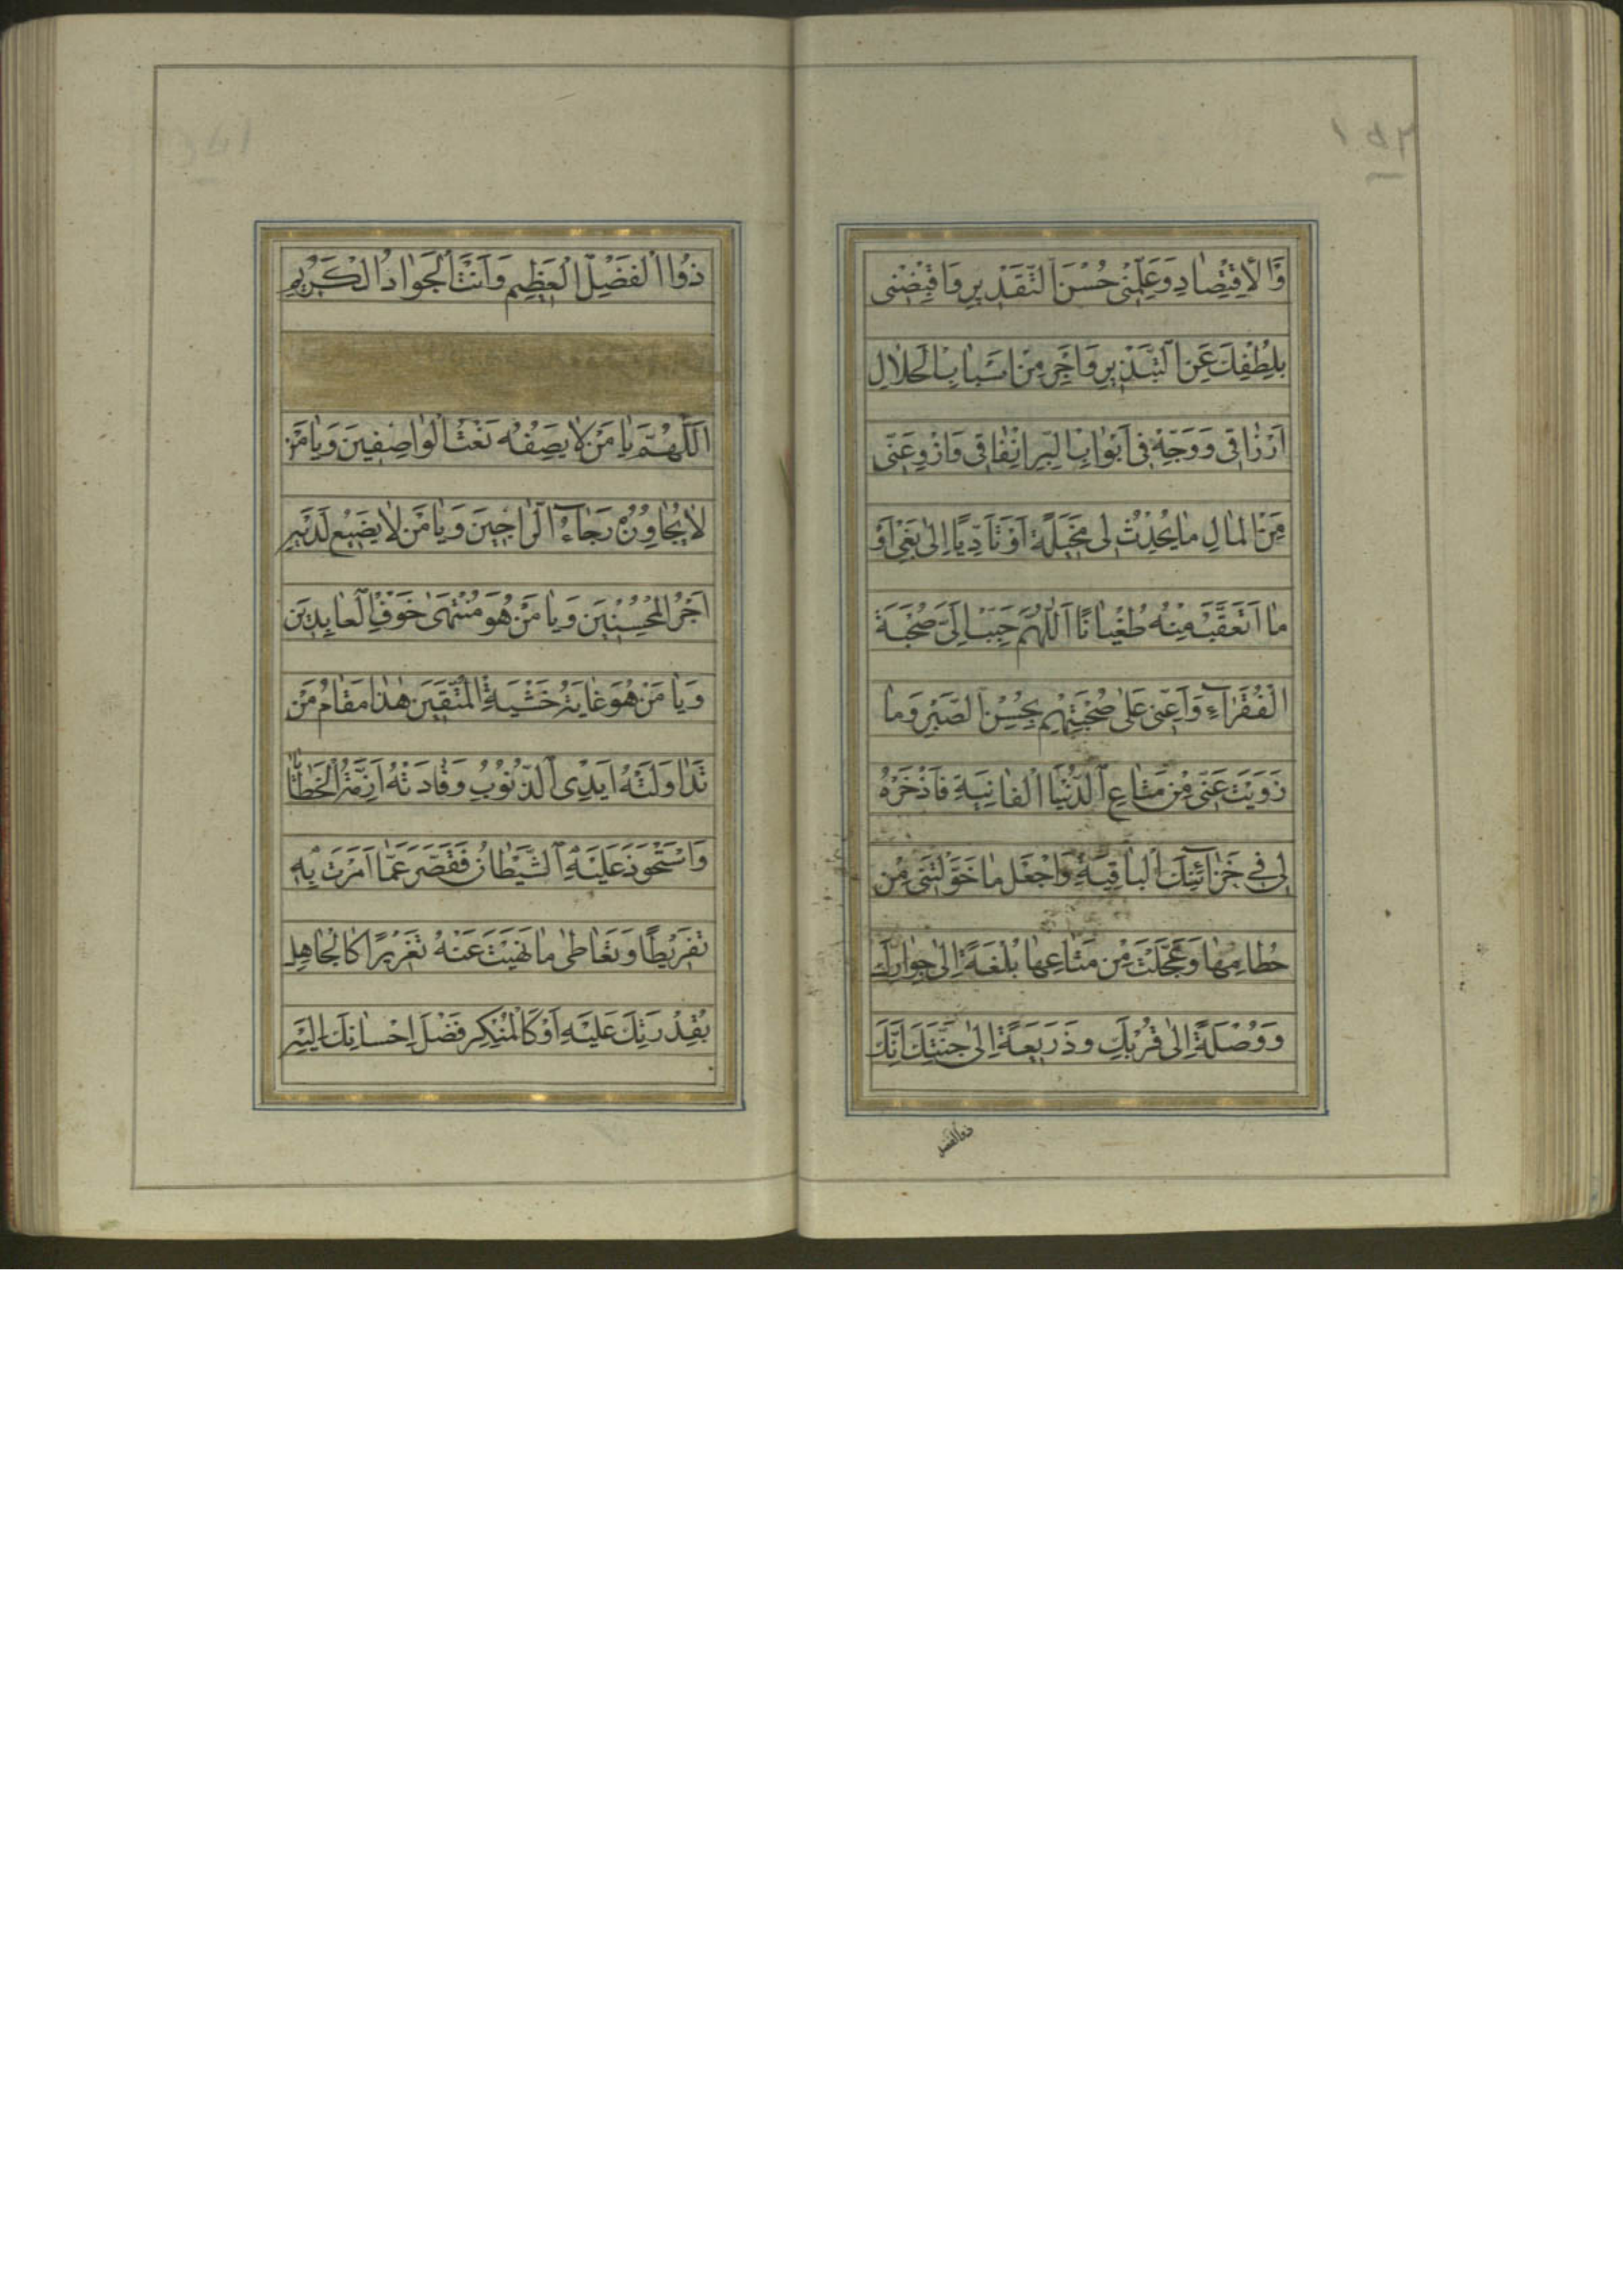 وَالْاِقْتِصادِ وَعَلِّمْنى حُسْنَ التَّقْديرِ وَاقْبِضْنى
بِلُطْفِكَ عَنِ التَّبْذيرِ وَاَجْرِ مِنْ اَسْبابِ الْحَلالِ
اَرْزاقى وَوَجِّهْ فى اَبْوابِ الْبِرِّ اِنْفاقى وَازْوِ عَنّى
مِنَ الْمالِ ما يُحْدِثُ لى مَخْيَلَةً اَوْ تَاَدِّيًا اِلى بَغْىٍ اَوْ
ما اَتَعَقَّبُ مِنْهُ طُغْيانًا اَللّهُمَّ حَبِّبْ اِلَىَّ صُحْبَةَ
الْفُقَرآءِ وَاَعِنّى عَلى صُحْبَتِهِمْ بِحُسْنِ الصَّبْرِ وَما
زَوَيْتَ عَنّى مِنْ مَتاعِ الدُّنْيَا الْفانِيَةِ فَاذْخَرْهُ
لى فى خَزآئِنِكَ الْباقِيَةِ وَاجْعَلْ ما خَوَّلْتَنى مِنْ
حُطامِها وَعَجَّلْتَ مِنْ مَتاعِها بُلْغَةً اِلى جِوارِكَ
وَوُصْلَةً اِلى قُرْبِكَ وَذَريعَةً اِلى جَنَّتِكَ اِنَّكَ
ذوالفضل
ذُوا الْفَضْلِ الْعَظيمِ وَاَنْتَ الْجَوادُ الْكَريمِ
اَللّهُمَّ يا مَنْ لا يَصِفُهُ نَعْتُ الْواصِفينَ وَيا مَنْ
لا يُجاوِزُهُ رَجآءُ الرّاجينَ وَيا مَنْ لا يَضيعُ لَدَيْهِ
اَجْرُ الْمُحْسِنينَ وَيا مَنْ هُوَ مُنْتَهى خَوْفِ الْعابِدينَ
وَيا مَنْ هُوَ غايَةُ خَشْيَةِ الْمُتَّقينَ هٰذا مَقامُ مَنْ
تَداوَلَتْهُ اَيْدِى الذُّنُوبِ وَقادَتْهُ اَزِمَّةُ الْخَطايا
وَاسْتَحْوَذَ عَلَيْهِ الشَّيْطانُ فَقَصَّرَ عَمّا اَمَرْتَ بِهِ
تَفْريطًا وَتَعاطى ما نَهَيْتَ عَنْهُ تَغْريرًا كَالْجاهِلِ
بِقُدْرَتِكَ عَلَيْهِ اَوْ كَالْمُنْكِرِ فَضْلَ اِحْسانِكَ اِلَيْهِ